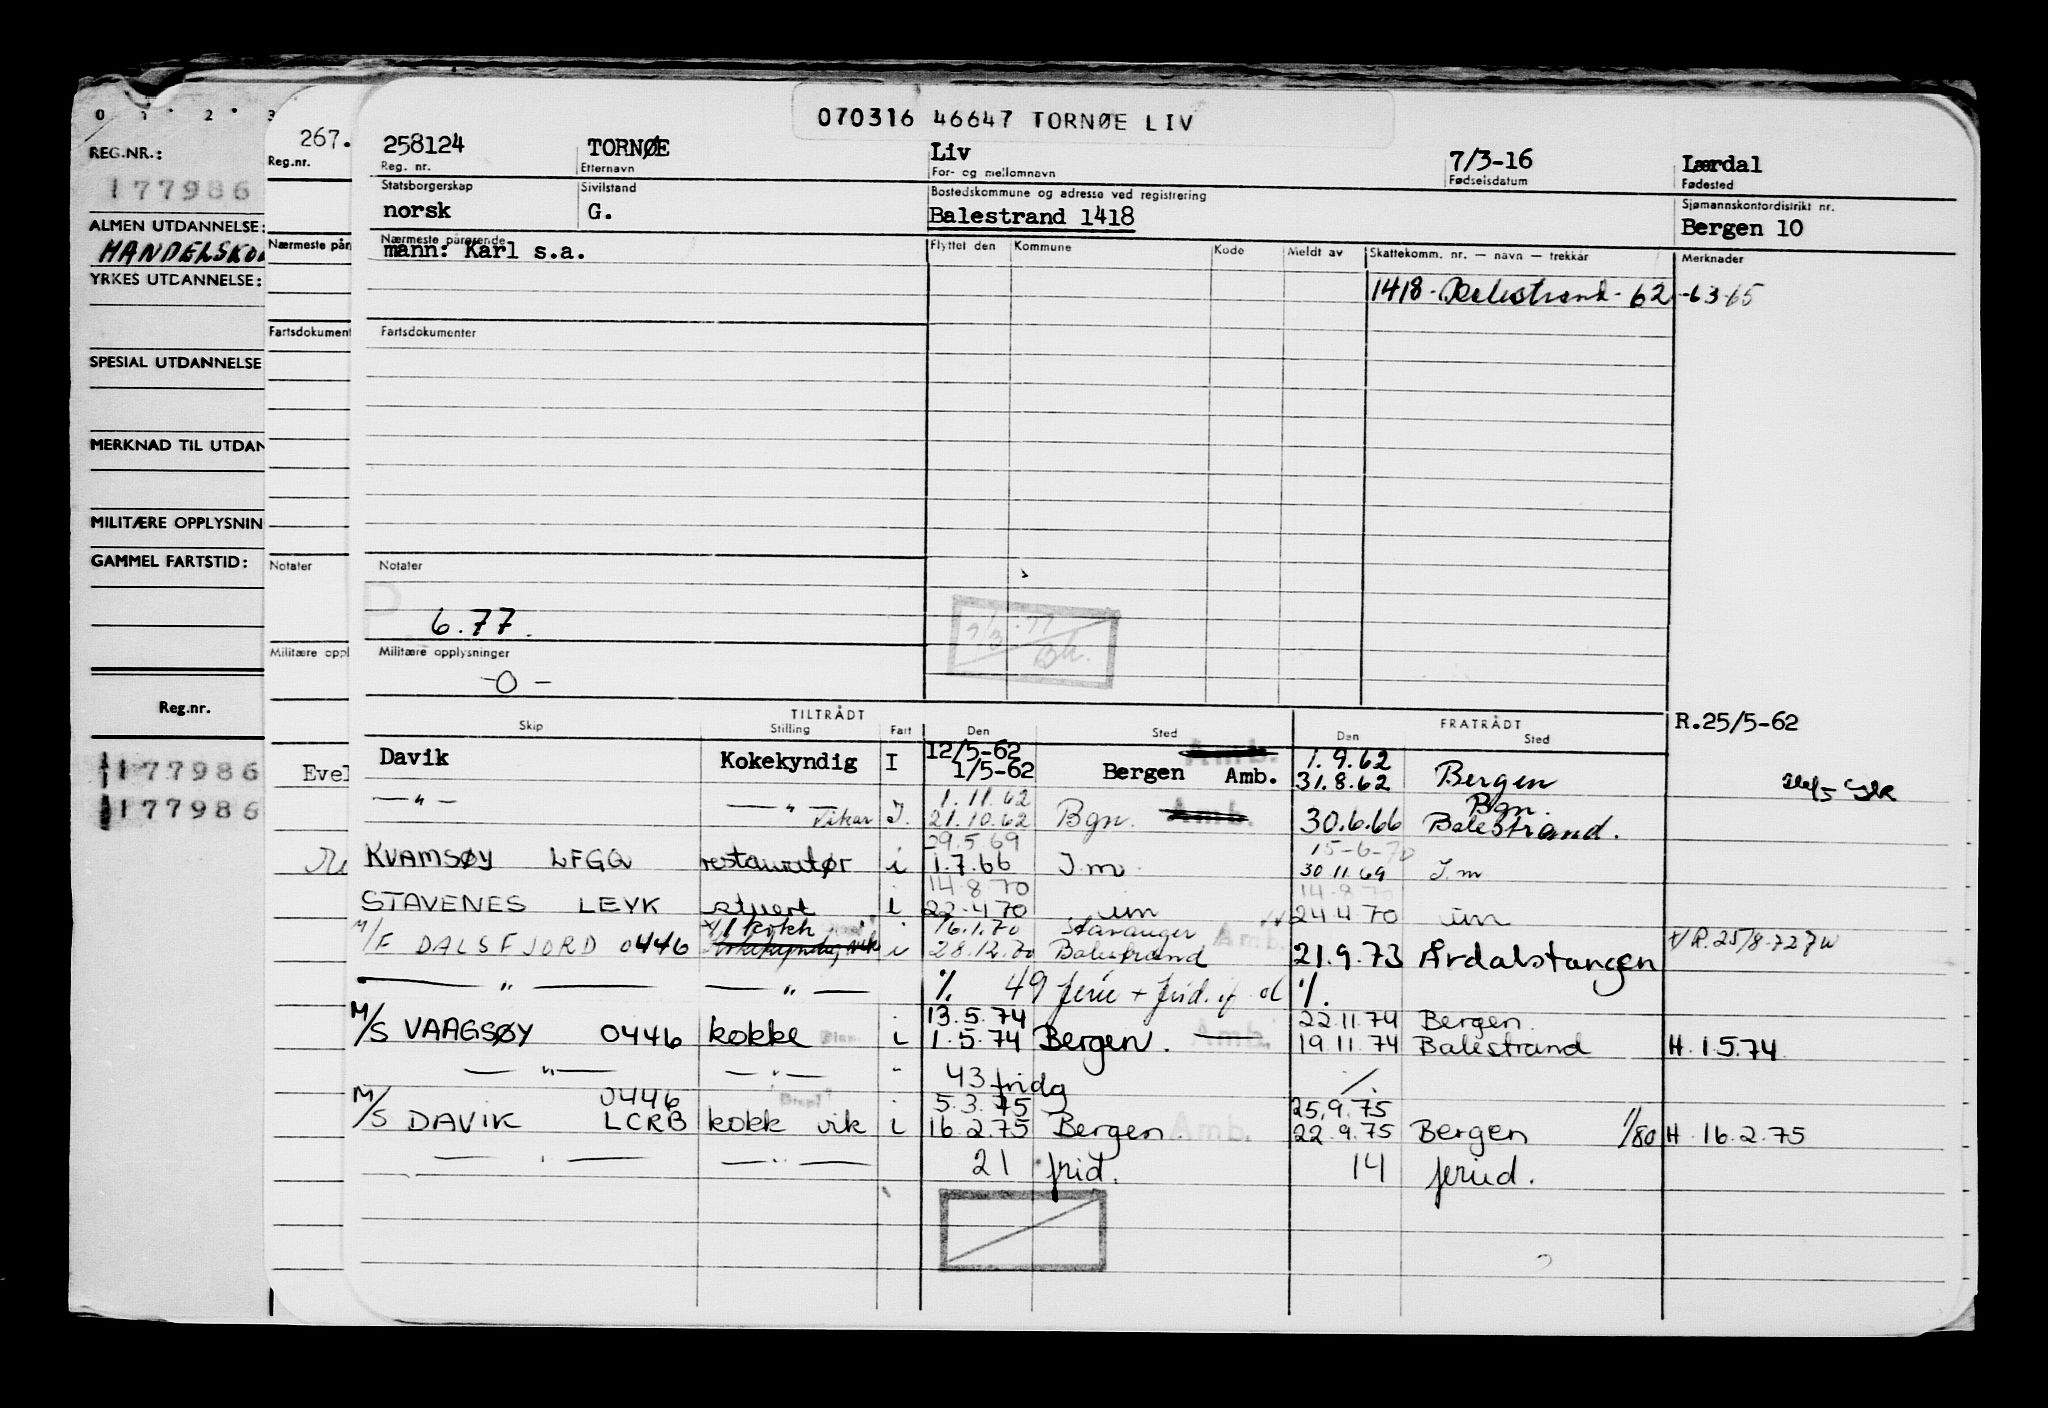 070316 46647 TORNØE LIV
0 1 2 3
REG.NR.:
177986
ALMEN UTDANNELSE:
HANDELSKO
YRKES UTDANNELSE:
SPESIAL UTDANNELSE
MERKNAD TIL UTDAN
MILITÆRE OPPLYSNIN
GAMMEL FARTSTID:
Reg.nr.
177986
177986
267.
Reg.nr.
Nærmeste pår
Fartsdokument
Notater
Militære oppl
Evel
258124 TORNØE Liv 7/3-16 Lærdal
Reg. nr. Etternavn For- og mellomnavn Fødselsdatum Fødested
Statsborgerskap Sivilstand Bostedskommune og adresse ved registrering Sjømannskontordistrikt nr.
norsk G. Balestrand 1418 Bergen 10
Nærmeste pårørende Flyttet den Kommune Kode Meldt av Skattekomm. nr. — navn — trekkår Merknader
mann: Karl s.a.
1418 - Balestrand - 62 -63-65
Fartsdokumenter
Notater
6.77.
7/3.77
Militære opplysninger
-0-
TILTRÅDT FRATRÅDT R.25/5-62
Skip Stilling Fart Den Sted Den Sted
12/5-62 Amb. 1.9.62
Davik Kokekyndig I 1/5-62 Bergen Amb. 31.8.62 Bergen
1.11.62 Bgn.
—"— —"— vikar I. 21.10.62 Bgn. Amb. 30.6.66 Balestrand.
29.5.69 15-6-70
KVAMSØY LFGQ restauratør i 1.7.66 I.m. 30 11.69 I.m
14.8.70 14-8-70
STAVENES LEYK stuert i 22.4.70 im 24.4.70 im
kokk 16.1.70 Stavanger Amb.
M/F DALSFJORD 0446 Kokekyndig vik i 28.12.70 Balestrand 21.9.73 Årdalstangen R.25/8-72
—"— —"— %. 49 ferie + frid. %.
13.5.74 22.11.74 Bergen.
M/S VAAGSØY 0446 kokke i 1.5.74 Bergen. Amb. 19.11.74 Balestrand H. 1.5.74
—"— —"— " 43 fridg %.
0446 5.3.75 25.9.75
M/S DAVIK LCRB kokk vik i 16.2.75 Bergen Amb. 22.9.75 Bergen 1/80 H. 16.2.75
—"— —"— 21 frid. 14 feried.